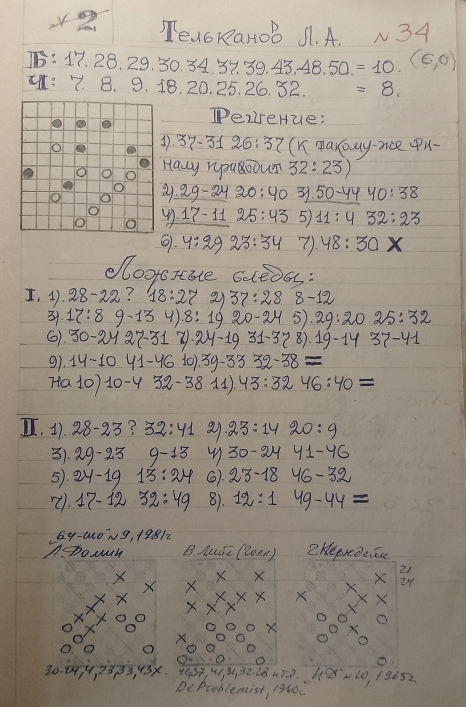 № 2
Тельканов Л. А. № 34
Б: 17. 28. 29. 30. 34. 37. 39. 43. 48. 50. = 10. (6,0)
Ч: 7. 8. 9. 18. 20. 25. 26. 32. = 8.
Решение:
1). 37-31 26:37 (К такому-же фи-
налу приводит 32:23)
2). 29-24 20:40 3). 50-44 40:38
4). 17-11 25:43 5) 11:4 32:23
6). 4:29 23:34 7). 48:30 X
Ложные следы:
I. 1). 28-22? 18:27 2) 37:28 8-12
3). 17:8 9-13 4). 8:19 20-24 5). 29:20 25:32
6). 30-24 27-31 7). 24-19 31-37 8). 19-14 37-41
9). 14-10 41-46 10). 39-33 32-38 =
На 10) 10-4 32-38 11). 43:32 46:40 =
II. 1). 28-23? 32:41 2). 23:14 20:9
3). 29-23 9-13 4) 30-24 41-46
5). 24-19 13:24 6). 23-18 46-32
7). 17-12 32:49 8). 12:1 49-44 =
"64-" №9, 1981г
Л. Фомин В. (Голл)
21
24
De Problemist, 1960г.